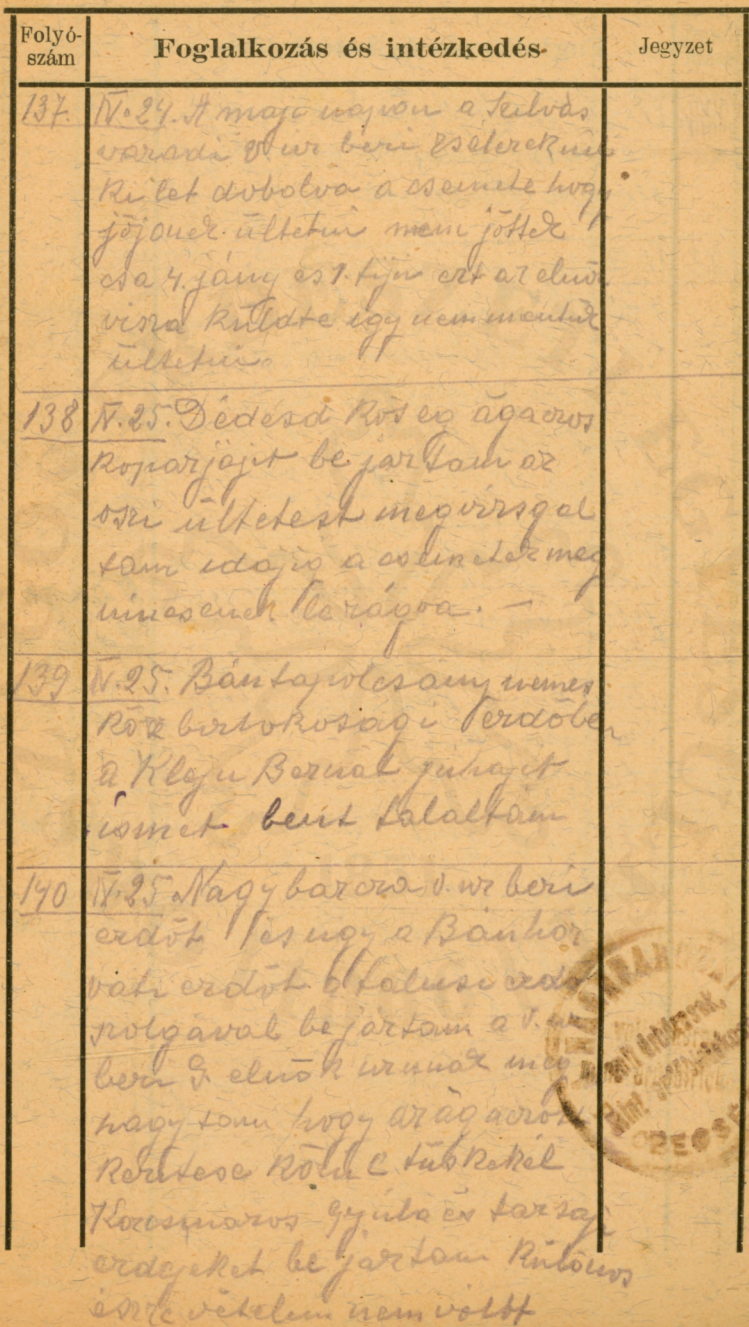 Folyó-
szám
Foglalkozás és intézkedés
Jegyzet
137. IV. 24. A maji napon a Szilvás
varadi v. ur beri zselereknek
ki let dobolva a csemete hogy
jöjenek ültetni nem jöttek
csa 4. jány es 1. fiju ezt az elnök
visza küldte igy nem mentük
ültetni
138 IV. 25. Dédesd köseg ágacros
koparjajit be jartam az
oszi ültetest megvizsgal
tam idajig a csemetek meg
nincsenek lerágva. —
139 IV. 25. Bántapolcsany nemes
köz birtokosagi erdöben
a Klejn Bernat juhajit
ismet bent talaltam
140 IV. 25 Nagybarcza v. ur beri
erdöt és ugy a Bánhor
vati erdöt a falusi erdö
szolgával be jartam a v. ur
beri elnök urnak meg
hagytam hogy az ágacrost
keritese köluc tüskekél
Korcsmaros Gyula es tarsaj
erdejeket be jartam különös
eszre vételem nem voltt